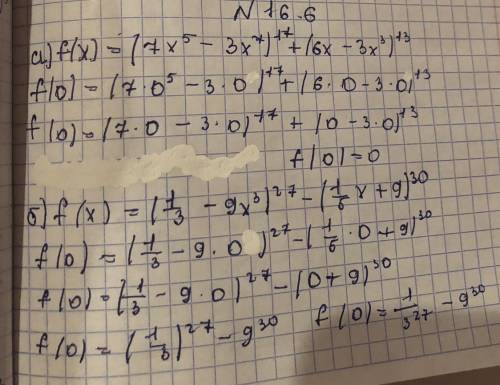 N 16.6
а) f(x) = (7x⁵ - 3x⁷)¹⁷ + (6x - 3x³)¹³
f(0) = (7·0⁵ - 3·0)¹⁷ + (6·0 - 3·0)¹³
f(0) = (7·0 - 3·0)¹⁷ + (0 - 3·0)¹³
f(0) = 0
б) f(x) = (1/3 - 9x³)²⁷ - (1/6 x + 9)³⁰
f(0) = (1/3 - 9·0)²⁷ - (1/6 · 0 + 9)³⁰
f(0) = (1/3 - 9·0)²⁷ - (0 + 9)³⁰
f(0) = (1/3)²⁷ - 9³⁰ f(0) = 1/3²⁷ - 9³⁰